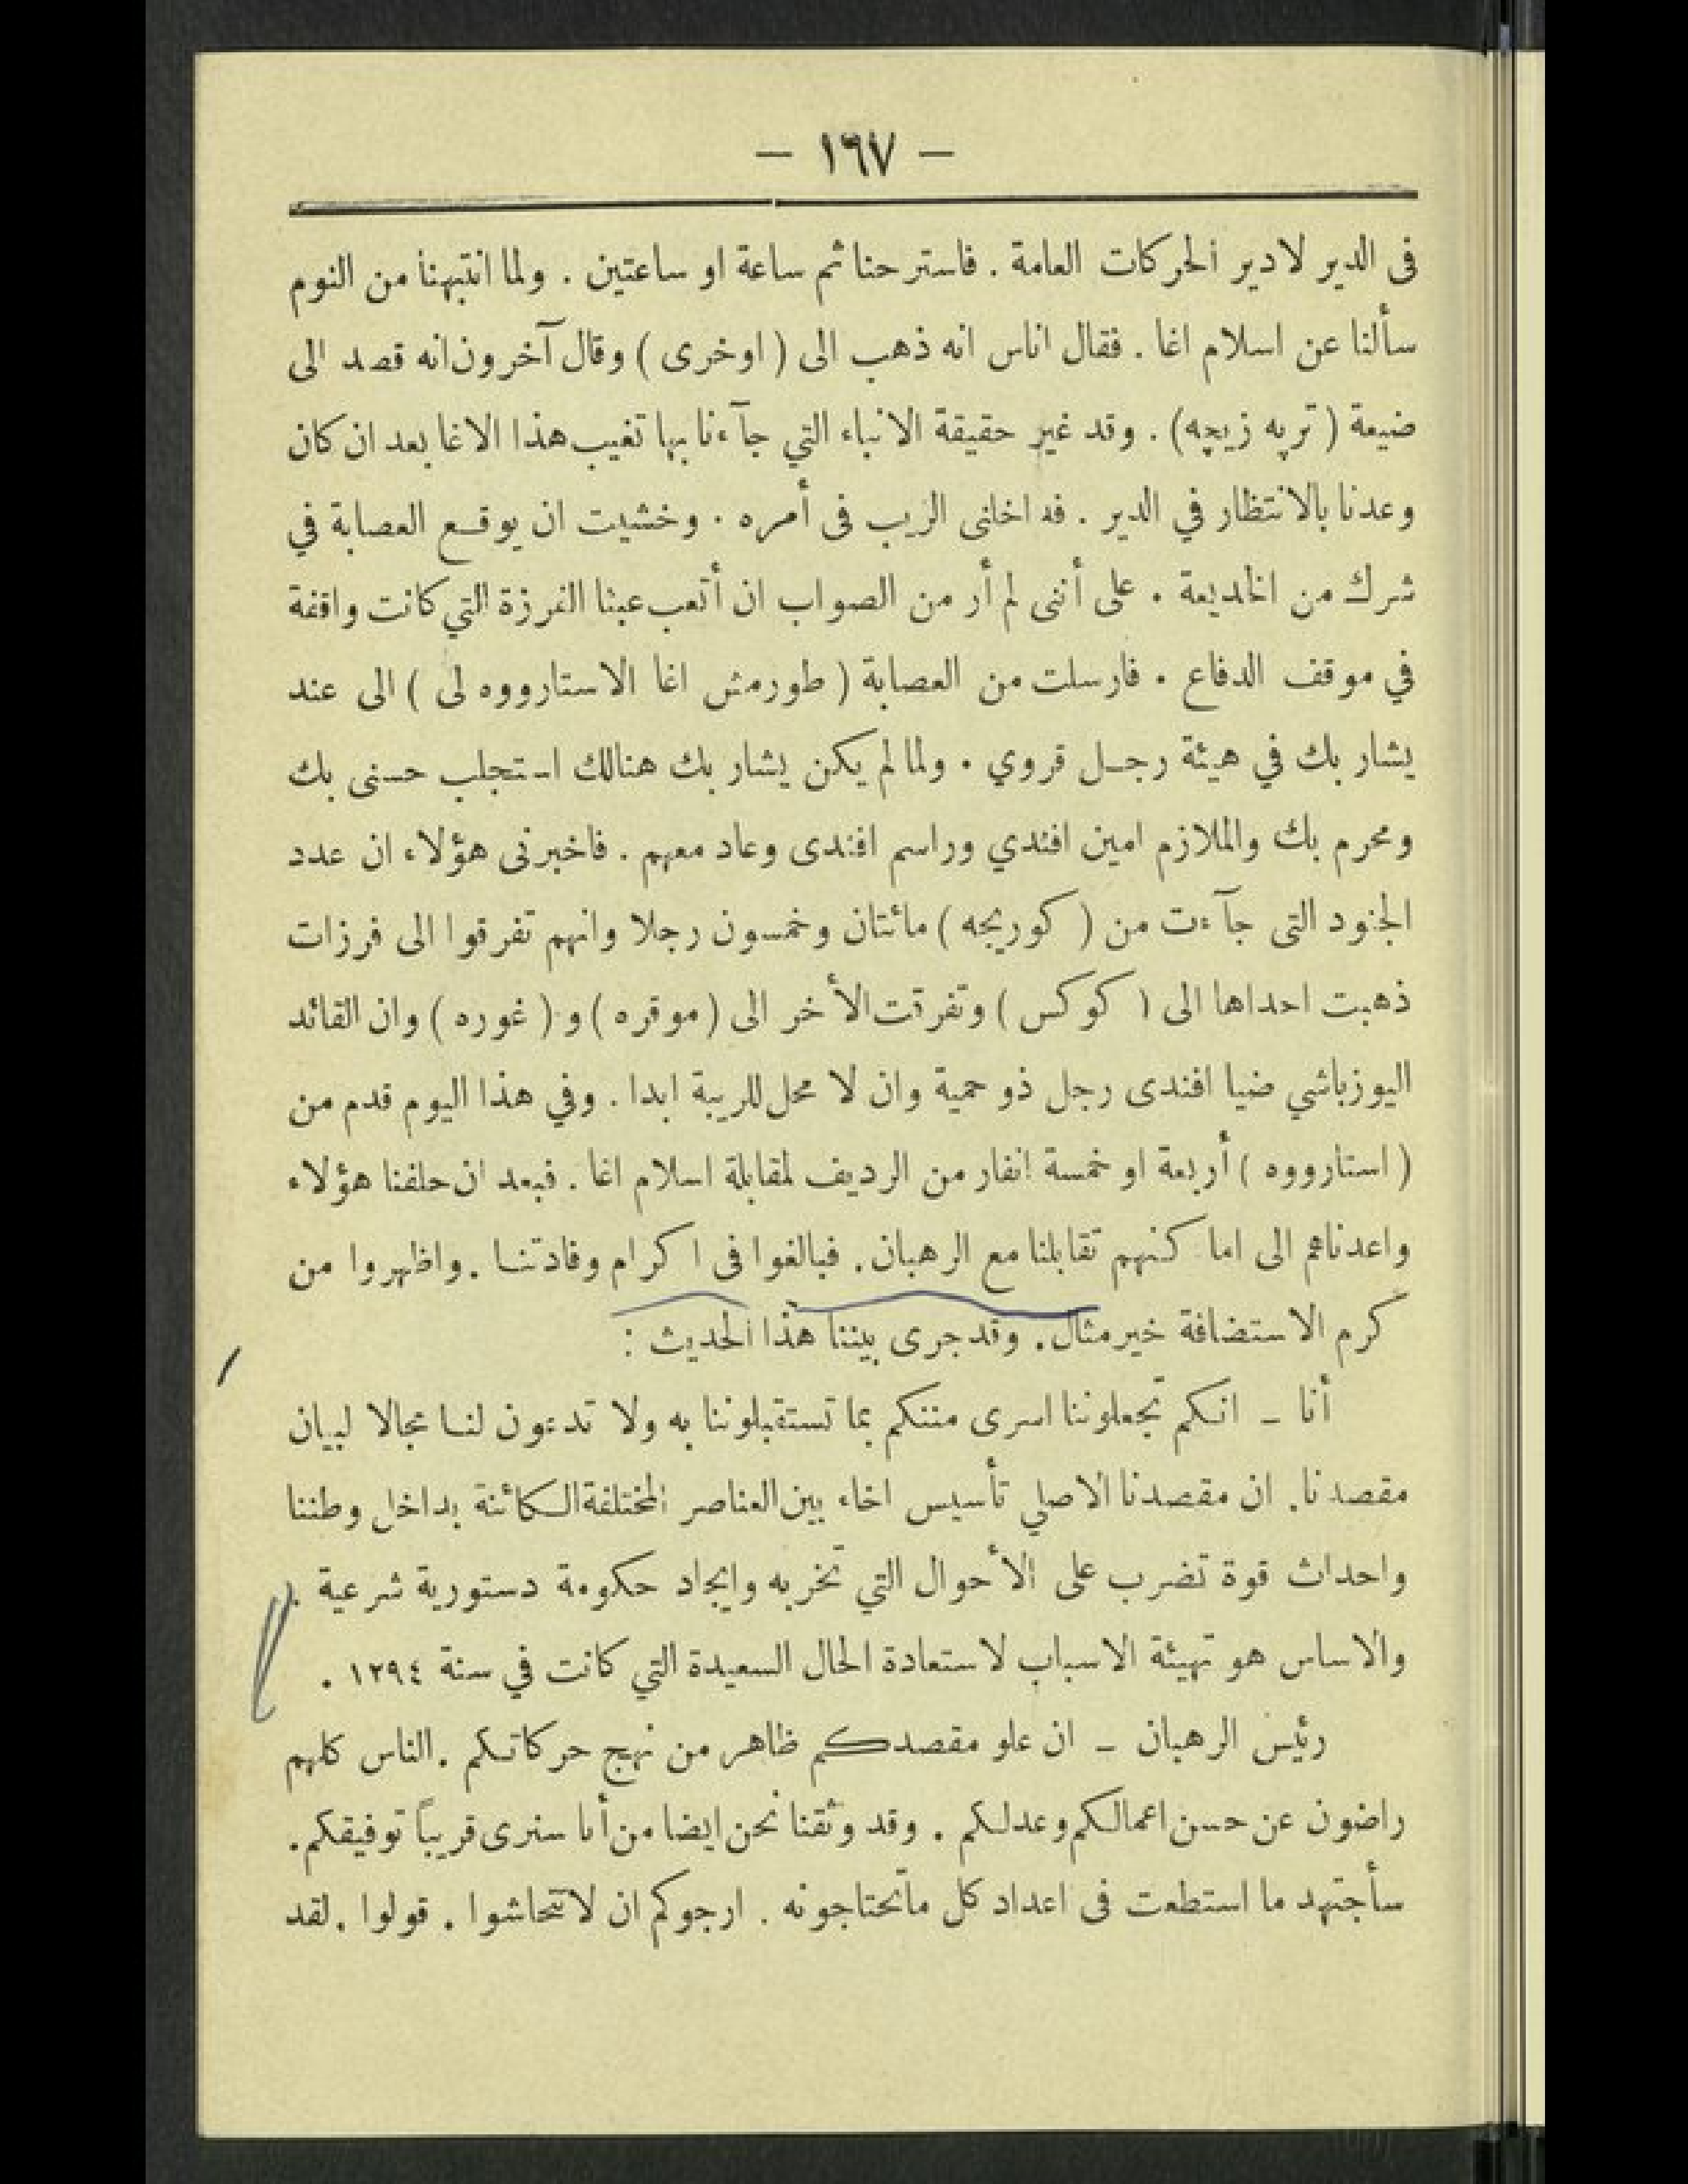 — ١٦٧ —
فى الدير لادير الحركات العامة . فاسترحنا ثم ساعة او ساعتين . ولما انتبهنا من النوم
سألنا عن اسلام اغا . فقال اناس انه ذهب الى ( اوخرى ) وقال آخرون انه قصد الى
ضيعة ( تر په زيچه ) . وقد غير حقيقة الانباء التي جآءنا بها تغيب هذا الاغا بعد ان كان
وعدنا بالانتظار في الدير . فداخلنى الريب فى أمره . وخشيت ان يوقع العصابة في
شرك من الخديعة . على أننى لم أر من الصواب ان أتعب عبثا الفرزة التي كانت واقفة
في موقف الدفاع . فارسلت من العصابة ( طورمش اغا الاستارووه لى ) الى عند
يشار بك في هيئة رجل قروي . ولما لم يكن يشار بك هنالك استجلب حسنى بك
ومحرم بك والملازم امين افندي وراسم افندى وعاد معهم . فاخبرنى هؤلاء ان عدد
الجنود التى جآءت من ( كوريجه ) مائتان وخمسون رجلا وانهم تفرقوا الى فرزات
ذهبت احداها الى ( كوكس ) وتفرقت الأخر الى ( موقره ) و ( غوره ) وان القائد
اليوزباشي ضيا افندى رجل ذو حمية وان لا محل للريبة ابدا . وفي هذا اليوم قدم من
( استارووه ) أربعة او خمسة انفار من الرديف لمقابلة اسلام اغا . فبعد ان حلفنا هؤلاء
واعدناهم الى اماكنهم تقابلنا مع الرهبان . فبالغوا فى اكرام وفادتنا . واظهروا من
كرم الاستضافة خير مثال . وقد جرى بيننا هذا الحديث :
أنا – انكم تجعلوننا اسرى مننكم بما تستقبلوننا به ولا تدعون لنا مجالا لبيان
مقصدنا . ان مقصدنا الاصلي تأسيس اخاء بين العناصر المختلفة الكائنة بداخل وطننا
واحداث قوة تضرب على الأحوال التي تخربه وايجاد حكومة دستورية شرعية .
والاساس هو تهيئة الاسباب لاستعادة الحال السعيدة التي كانت في سنة ١٢٩٤ .
رئيس الرهبان – ان علو مقصدكم ظاهر من نهج حركاتكم . الناس كلهم
راضون عن حسن اعمالكم وعدلكم . وقد وثقنا نحن ايضا من أنا سنرى قريباً توفيقكم .
سأجتهد ما استطعت فى اعداد كل ما تحتاجونه . ارجوكم ان لا تتحاشوا . قولوا . لقد